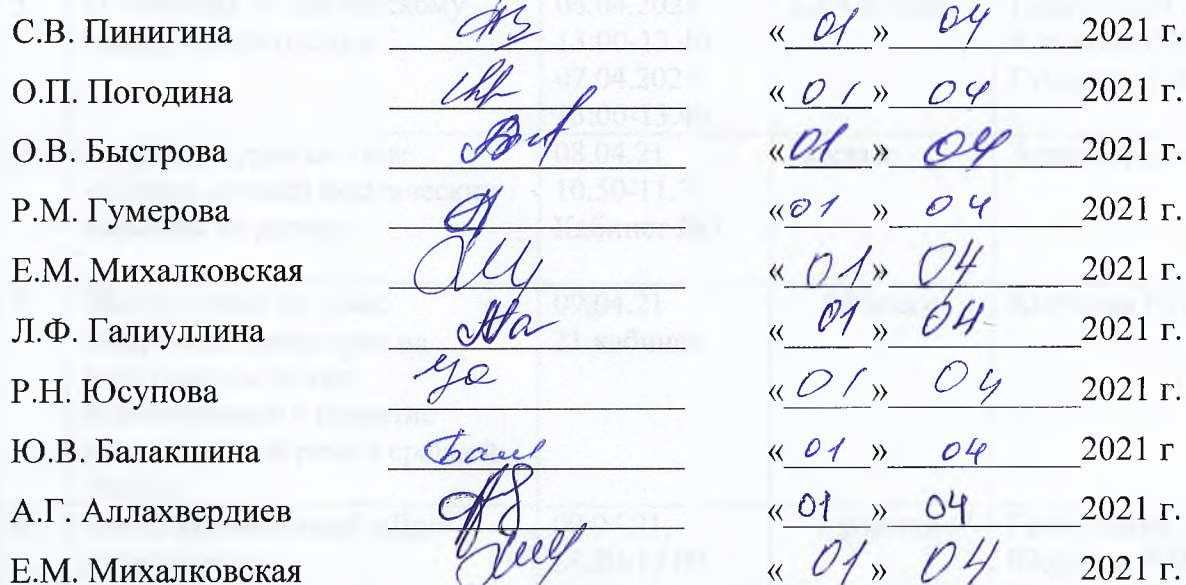 С.В. Пинигина «01» 04 2021 г.
О.П. Погодина «01» 04 2021 г.
О.В. Быстрова «01» 04 2021 г.
Р.М. Гумерова «01» 04 2021 г.
Е.М. Михалковская «01» 04 2021 г.
Л.Ф. Галиуллина «01» 04 2021 г.
Р.Н. Юсупова «01» 04 2021 г.
Ю.В. Балакшина «01» 04 2021 г
А.Г. Аллахвердиев «01» 04 2021 г.
Е.М. Михалковская «01» 04 2021 г.